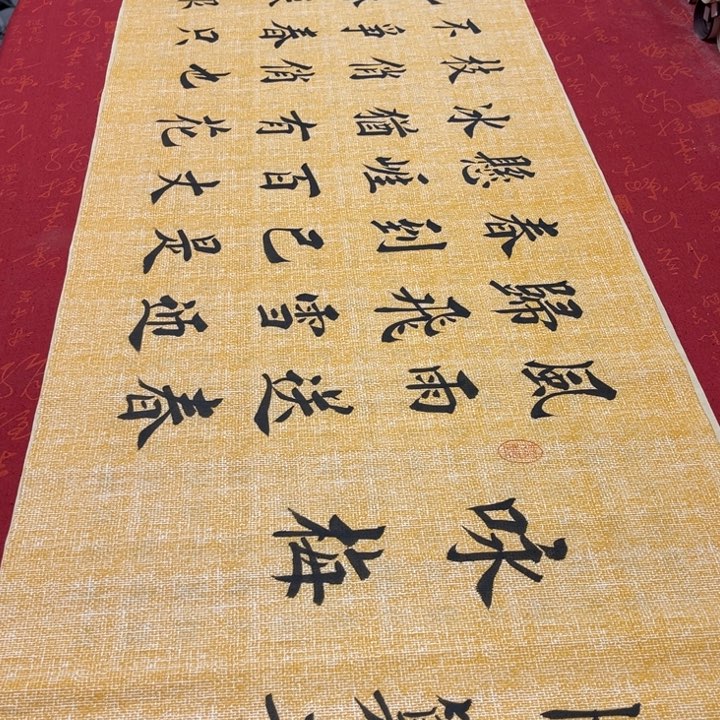 咏梅
風雨送春
歸飛雪迎
春到已是
懸崖百丈
冰猶有花
枝俏俏也
不爭春只